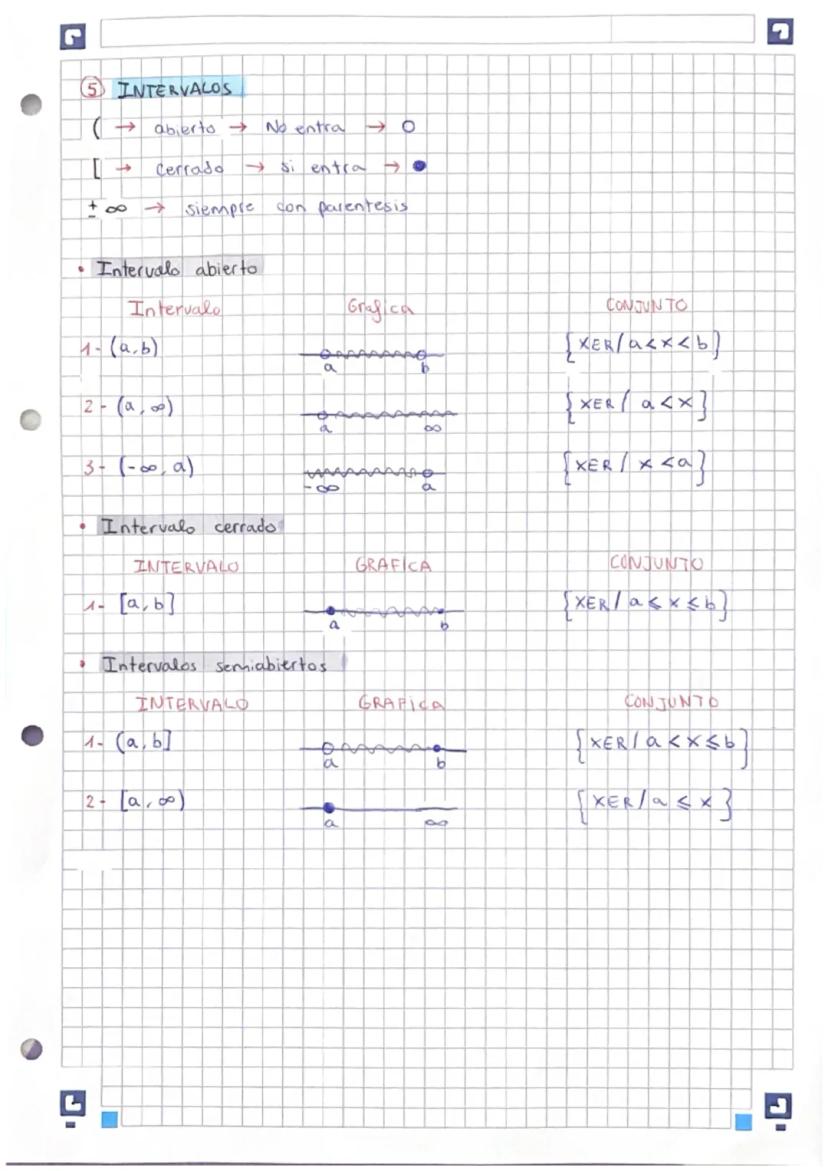 ⑤ INTERVALOS
( → abierto → No entra → ○
[ → cerrado → si entra → ●
± ∞ → siempre con parentesis
• Intervalo abierto
Intervalo Grafica CONJUNTO
1- (a,b) a b {XER/a<x<b}
2- (a,∞) a ∞ {XER/ a<x}
3- (-∞, a) -∞ a {XER/ x<a}
• Intervalo cerrado
INTERVALO GRAFICA CONJUNTO
1- [a,b] a b {XER/ a≤x≤b}
• Intervalos semiabiertos
INTERVALO GRAFICA CONJUNTO
1- (a,b] a b {XER/a<x≤b}
2- [a,∞) a ∞ {XER/a≤x}